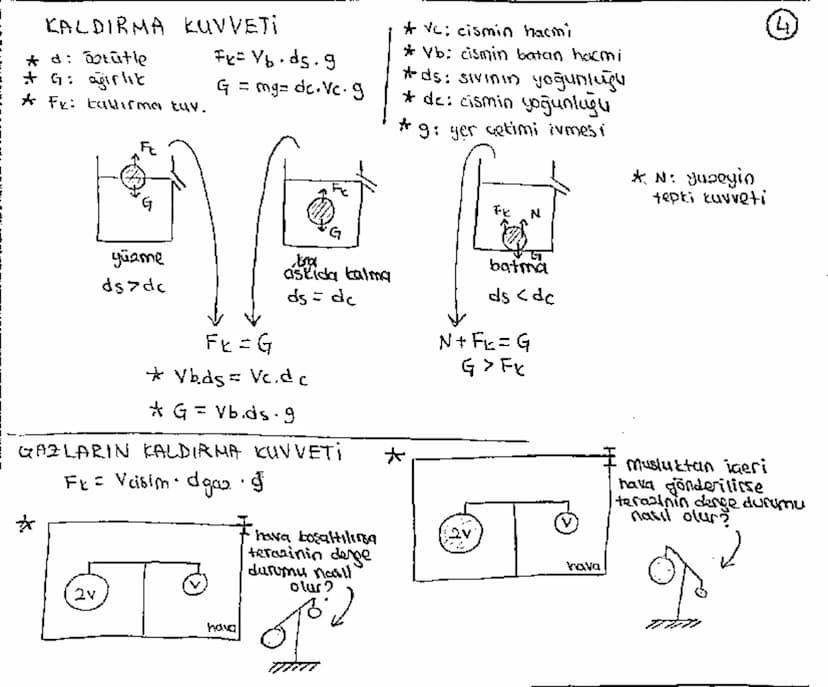 KALDIRMA KUVVETİ
④
* d: özkütle
* G: ağırlık
* Fk: kaldırma kuv.
Fk = Vb . ds . g
G = mg = dc . Vc . g
* Vc: cismin hacmi
* Vb: cismin batan hacmi
* ds: sıvının yoğunluğu
* dc: cismin yoğunluğu
* g: yer çekimi ivmesi
* N: yüzeyin
tepki kuvveti
Fk
G
Fk
G
Fk N
G
yüzme
ds > dc
askıda kalma
ds = dc
batma
ds < dc
Fk = G
* Vb.ds = Vc.dc
* G = Vb.ds.g
N + Fk = G
G > Fk
GAZLARIN KALDIRMA KUVVETİ
Fk = Vcisim . dgaz . g
*
2V
V
hava
hava boşaltılırsa
terazinin denge
durumu nasıl
olur?
*
2V
V
hava
Musluktan içeri
hava gönderilirse
terazinin denge durumu
nasıl olur?